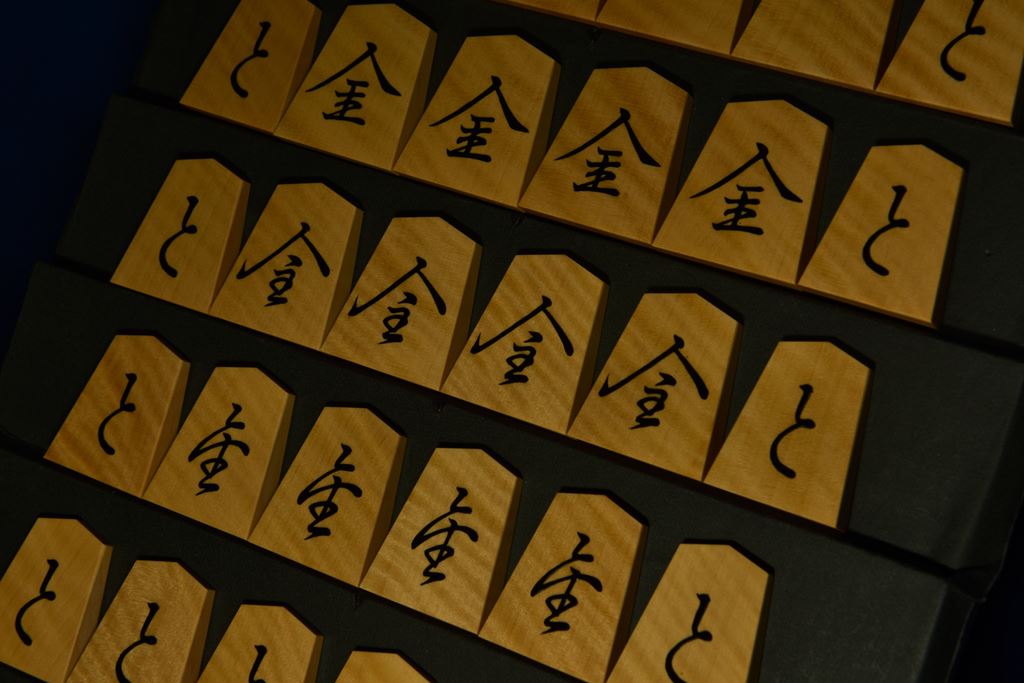 と
と 金 金 金 金 と
と 金 金 金 金 と
と 金 金 金 金 と
と と と